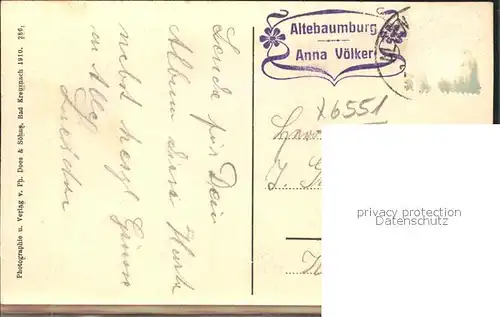 Photographie u. Verlag v. Ph. Does & Söhne, Bad Kreuznach 1910. 286.
Sende für Dein
Album diese Karte
nebst herzl. Grüsse
an Alle
Altebaumburg
Anna Völker
X6551
privacy protection
www.oldthing.com